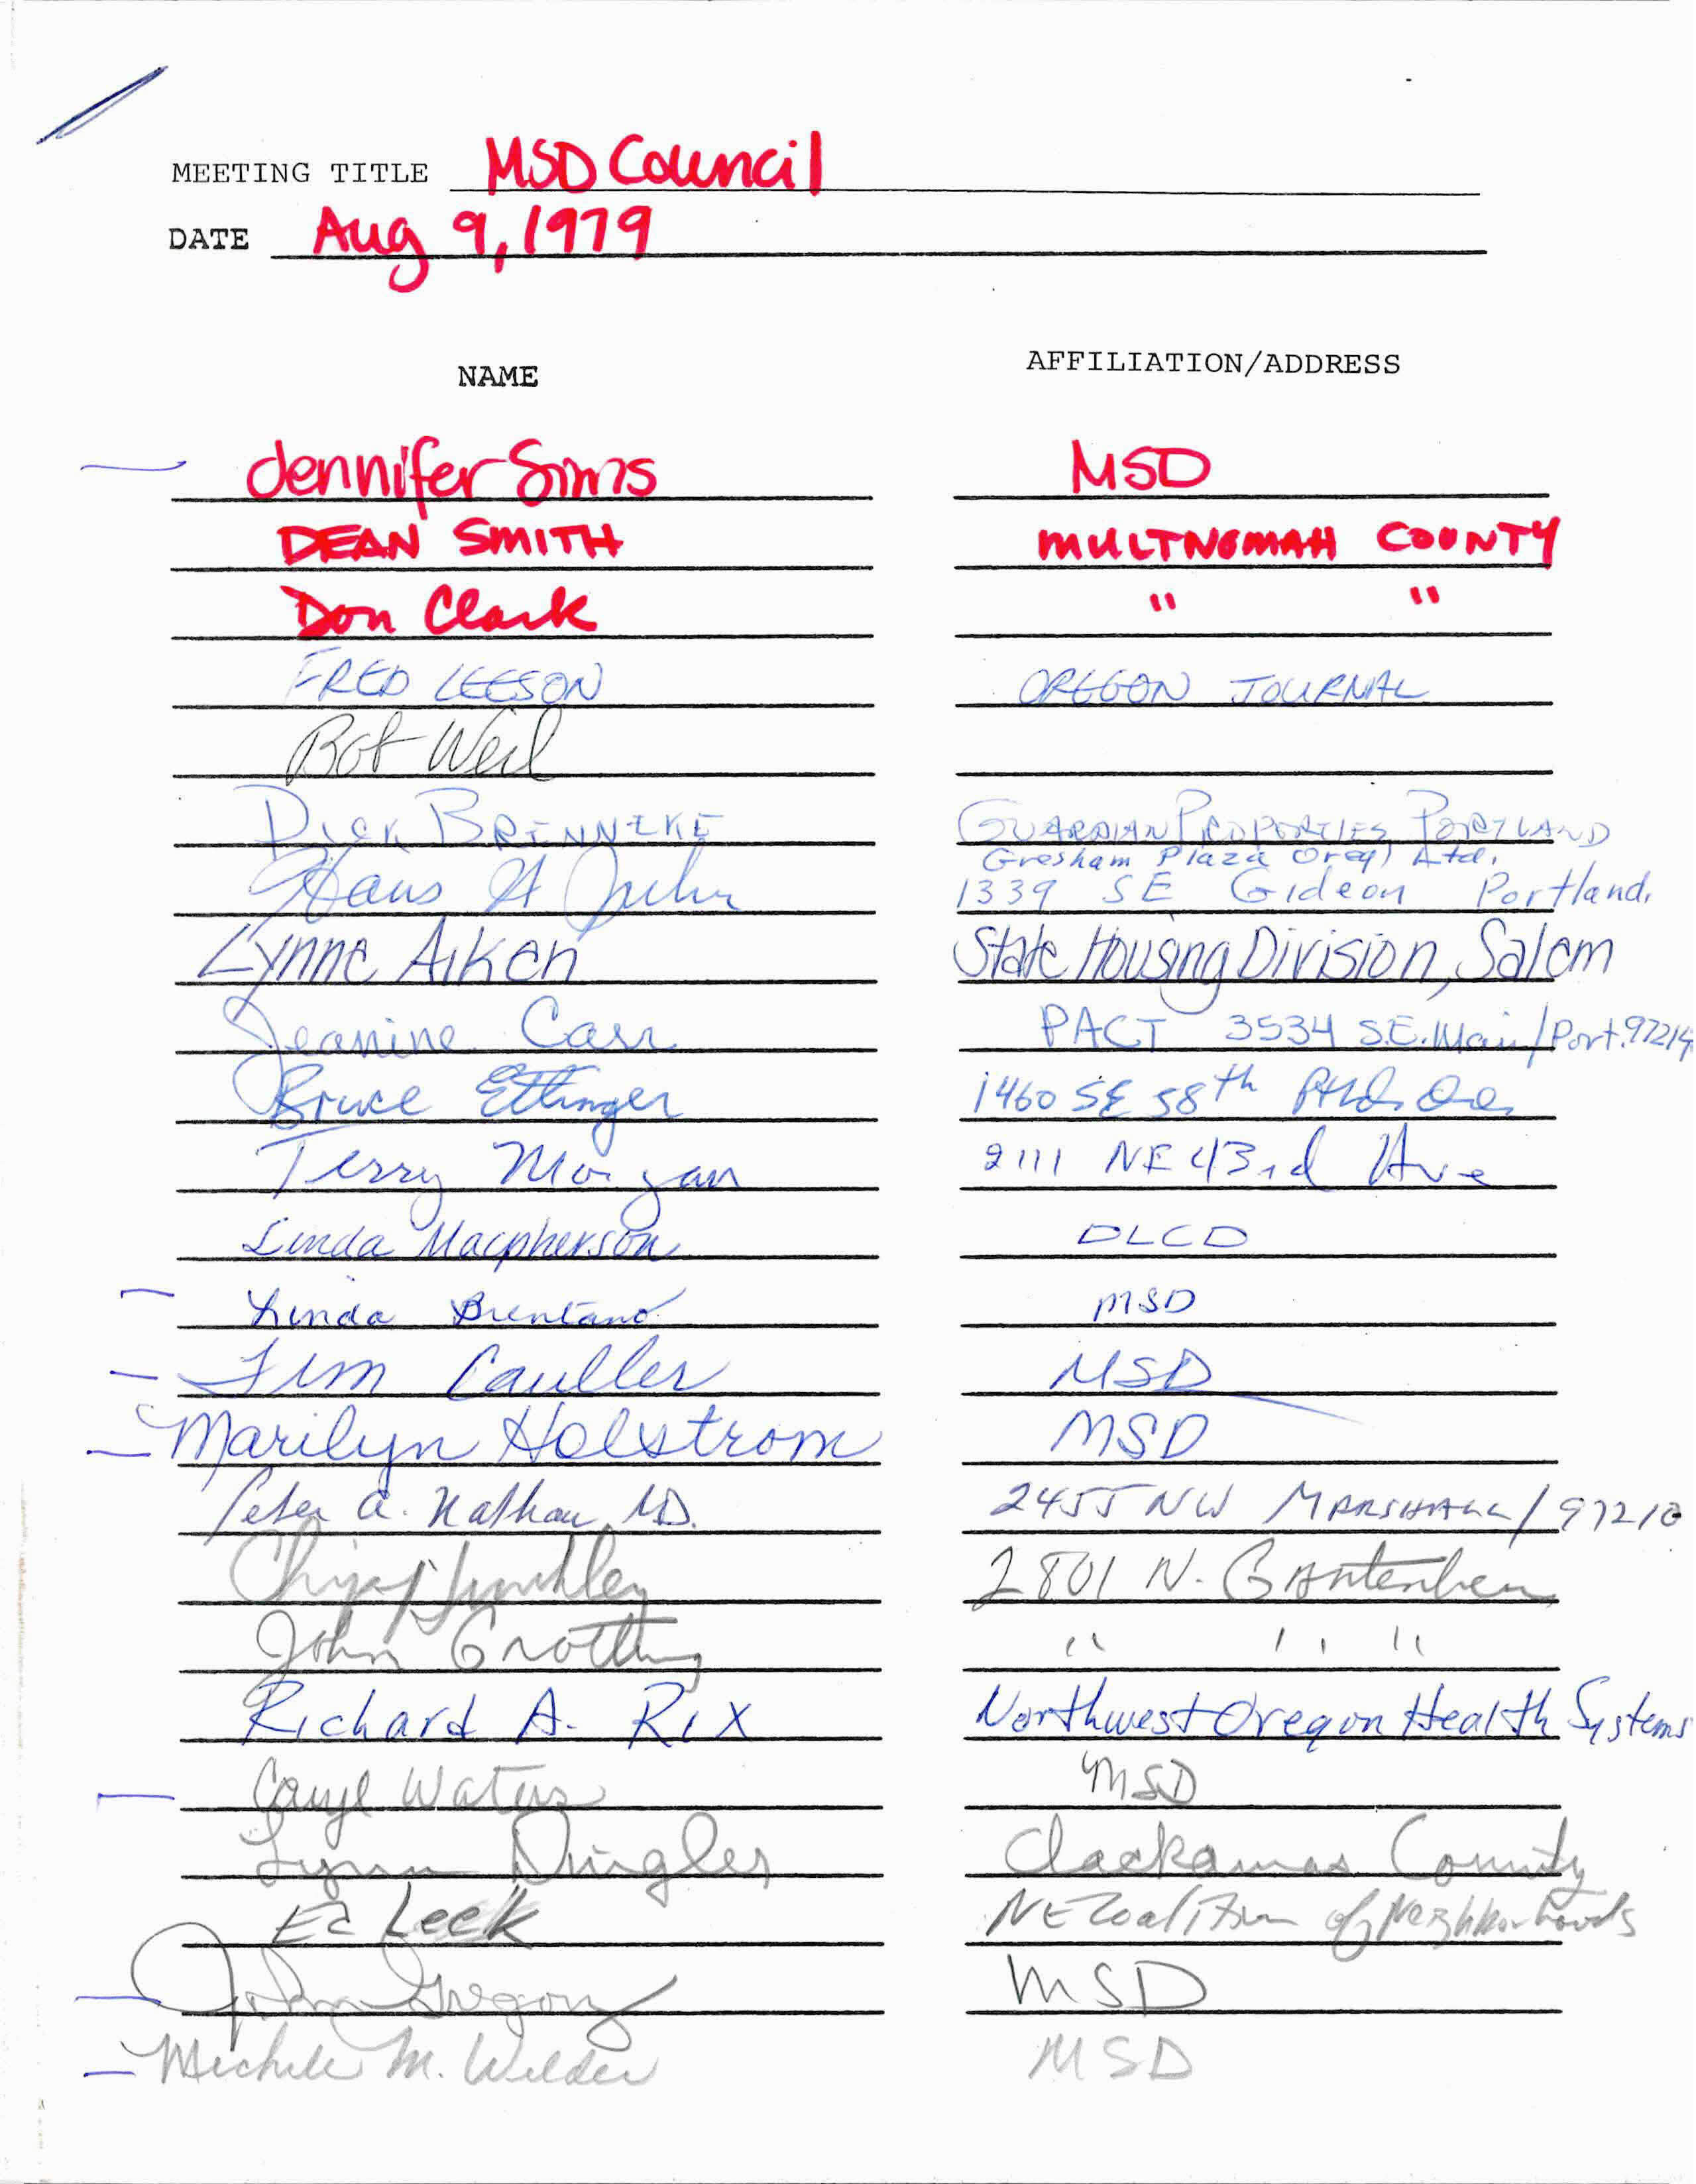 MEETING TITLE MSD Council
DATE Aug 9, 1979
NAME AFFILIATION/ADDRESS
Jennifer Sims MSD
DEAN SMITH MULTNOMAH COUNTY
Don Clark " "
FRED LEESON OREGON JOURNAL
Bob Weil
DICK BRENNEKE GUARDIAN PROPERTIES, PORTLAND
Gresham Plaza Oreg) Ltd.
Hans A 1339 SE Gideon Portland.
Lynne Aiken State Housing Division, Salem
Jeanine Carr PACT 3534 S.E. Main/Port. 97214
Bruce Ettinger 1460 SE 58th Ptld. Ore.
Terry Morgan 2111 NE 43rd Ave
Linda Macpherson DLCD
Linda Brentano MSD
Cauller MSD
Marilyn Holstrom MSD
Peter A. Nathan, MD. 2455 NW MARSHALL/97210
2801 N. Gantenbein
John " " "
Richard A. Rix Northwest Oregon Health Systems
Caryl Waters MSD
Lynn Dingler Clackamas County
Ed Leek NE Coalition of Neighborhoods
John Gregory MSD
Michele M. Wilder MSD